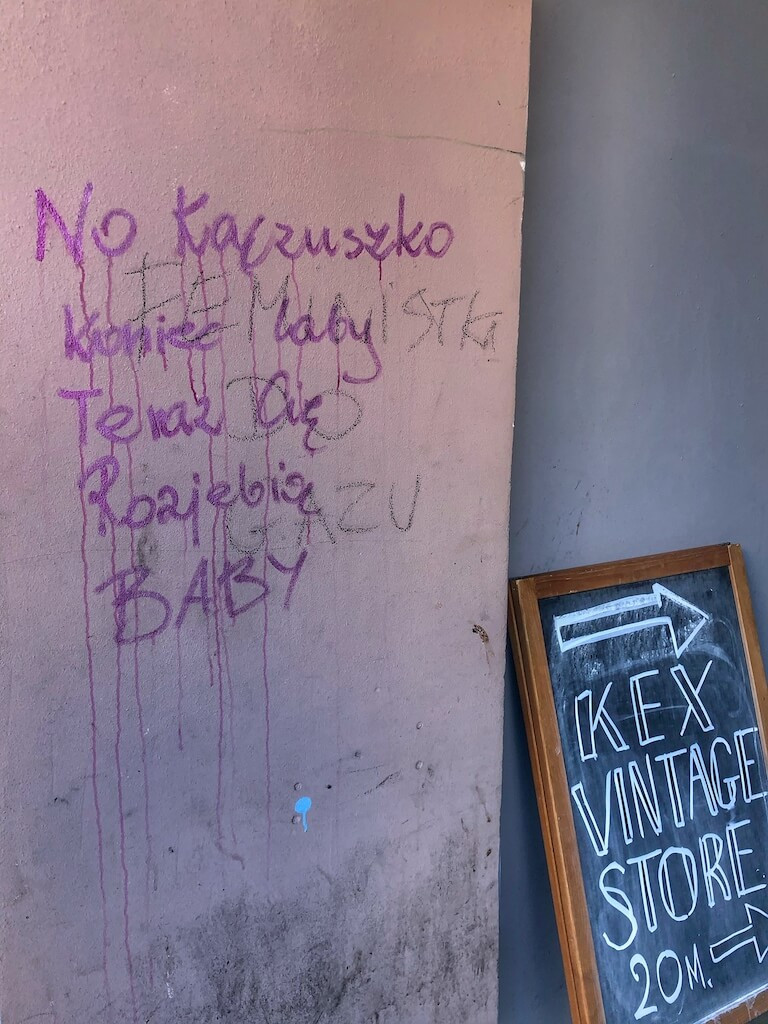 No Kączuszko
Koniec laby
Teraz Cię
Rozjebię
BABY
FEMINISTKI
DO
GAZU
KEX
VINTAGE
STORE
20M.